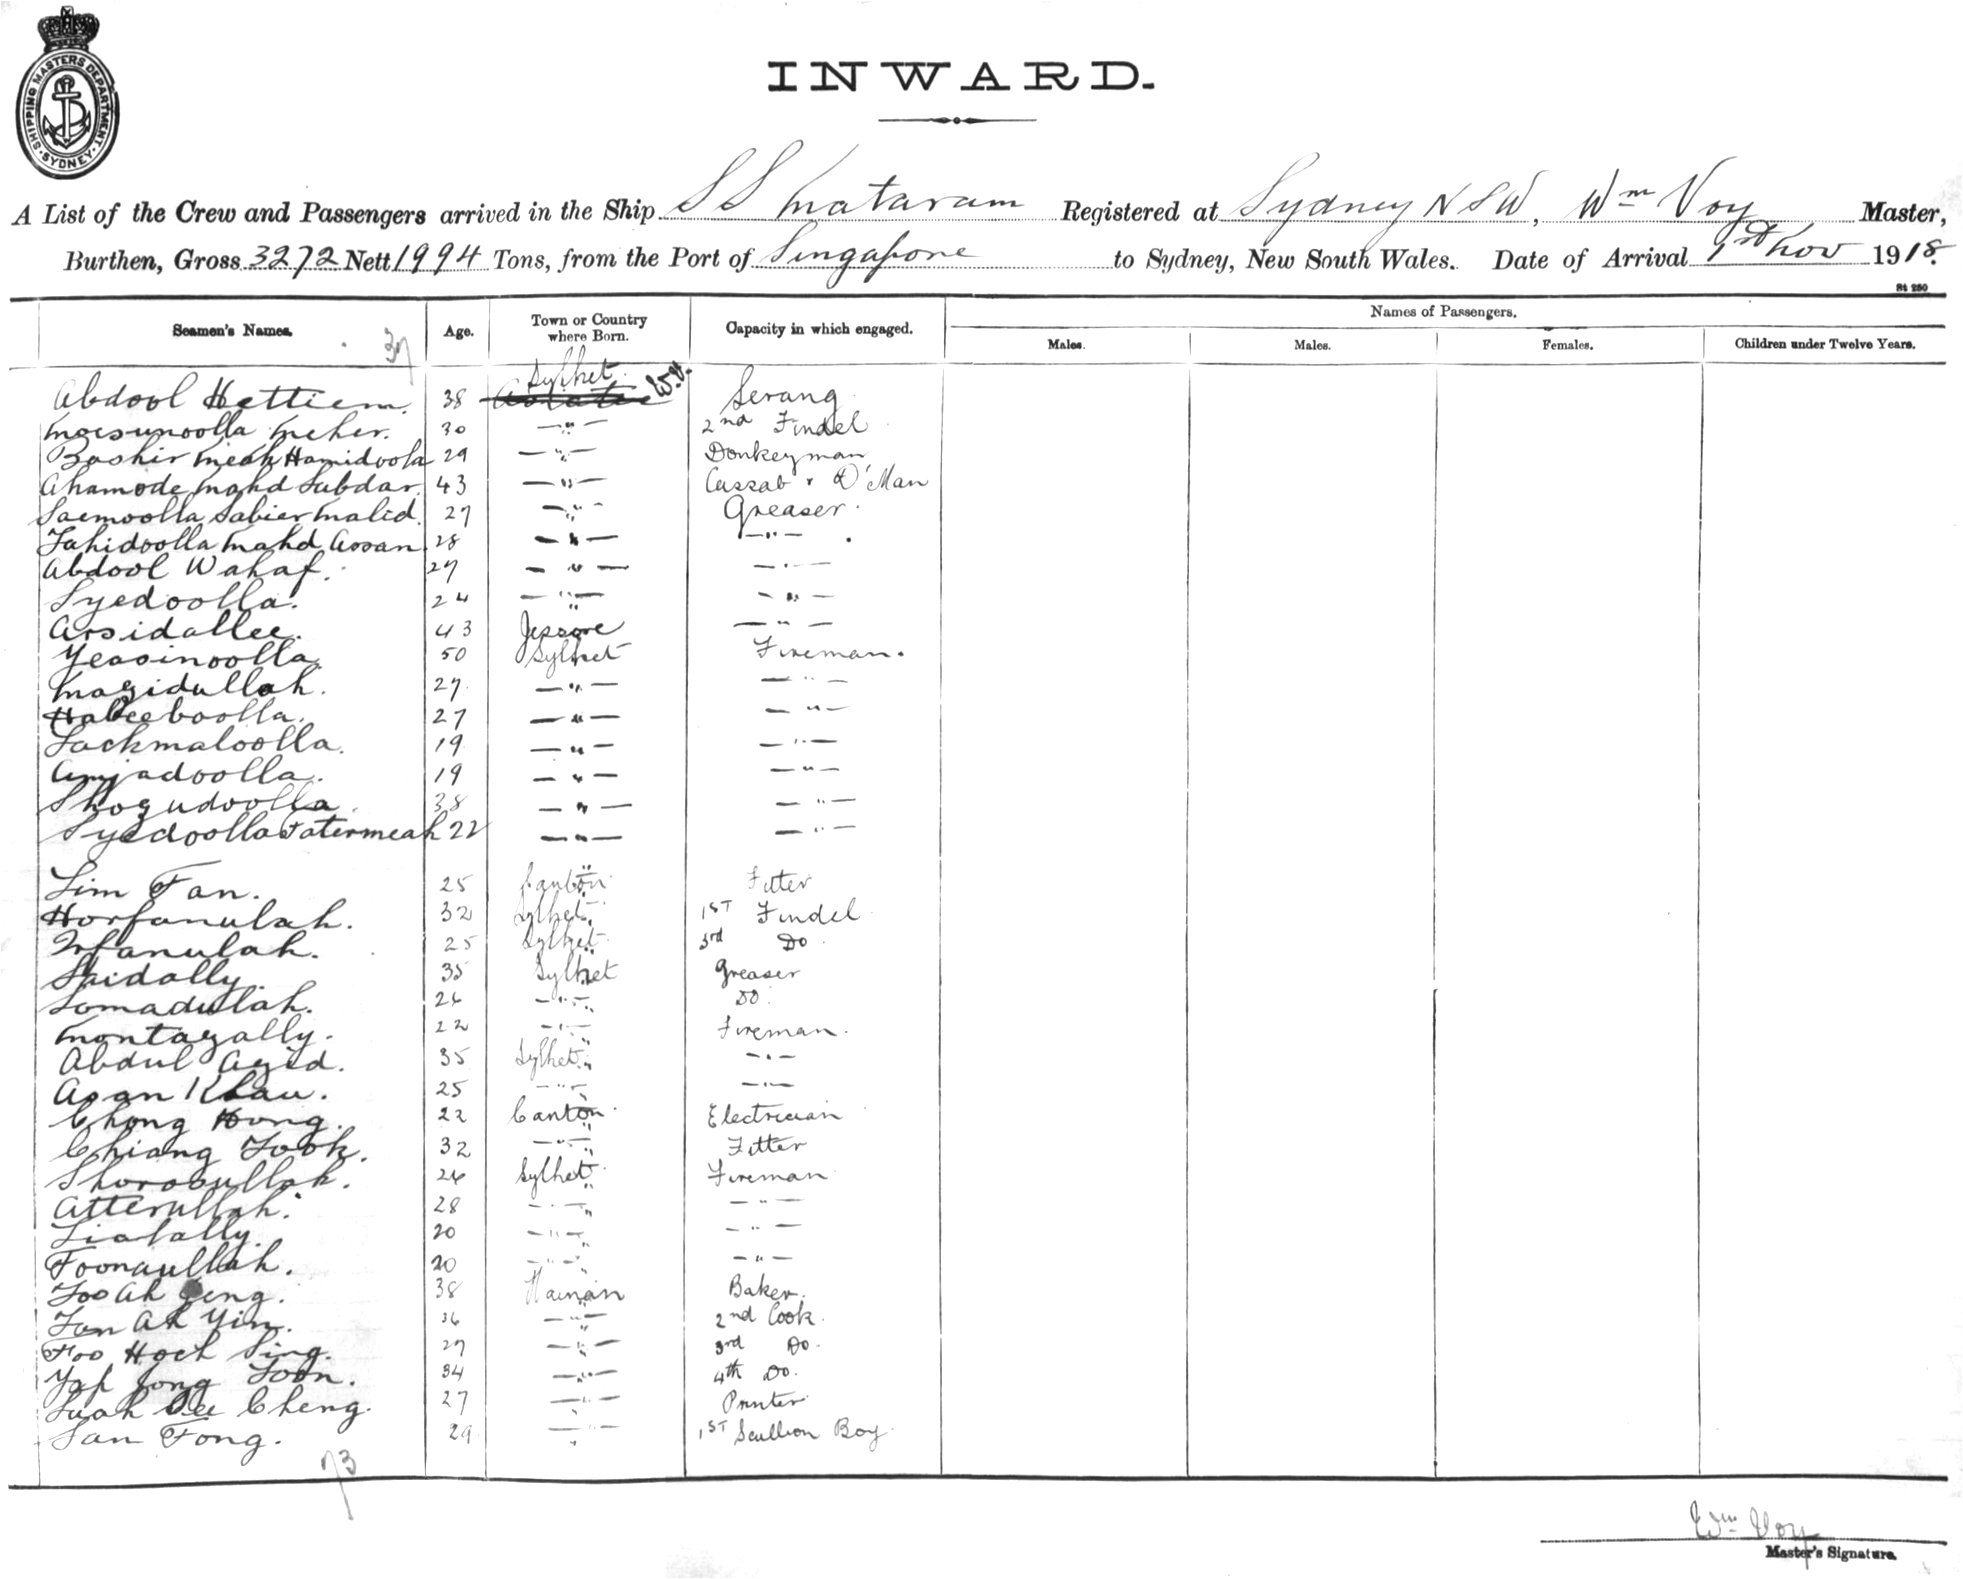 SHIPPING MASTERS DEPARTMENT. SYDNEY.
INWARD.
A List of the Crew and Passengers arrived in the Ship SS Mataram Registered at Sydney NSW, Wm Voy Master,
Burthen, Gross 3272 Nett 1994 Tons, from the Port of Singapore to Sydney, New South Wales. Date of Arrival 1st Nov 1918.
St 250
Seamen's Names. Age. Town or Country where Born. Capacity in which engaged. Names of Passengers.
Males. Males. Females. Children under Twelve Years.
37
Sylhet W.V.
Abdool Hettiem. 38 Serang
Moesunoolla Meher. 30 —"— 2nd Tindel
Bashir Meah Hamidoola 29 —"— Donkeyman
Ahamode Mahd Subdar 43 —"— Cassab & D'Man
Saemoolla Sabier Malid 27 —"— Greaser.
Tahidoolla Mahd Assan 28 —"— —"—
Abdool Wahaf. 27 —"— —"—
Syedoolla. 24 —"— —"—
Arsidallee. 43 Jessore —"—
Yeasinoolla. 50 Sylhet Fireman.
Mazidullah. 27 —"— —"—
Habeeboolla. 27 —"— —"—
Lackmaloolla. 19 —"— —"—
Amjadoolla. 19 —"— —"—
Shogudoolla. 38 —"— —"—
Syedoolla Fatermeah 22 —"— —"—
Lim Fan. 25 Canton Fitter
Horfanulah. 32 Sylhet 1st Tindel
Irfanulah. 25 Sylhet 3rd Do
Saidally. 35 Sylhet Greaser
Somadullah. 26 —"— Do.
Montazally. 22 —"— Fireman.
Abdul Azid. 35 Sylhet —"—
Asan Khan. 25 —"— —"—
Chong Hong. 22 Canton Electrician
Chiang Fook. 32 —"— Fitter
Shorosullah. 26 Sylhet Fireman
Atterullah. 28 —"— —"—
Siafally. 20 —"— —"—
Foonaullah. 20 —"— —"—
Foo Ah Geng. 38 Hainan Baker.
Fan Ah Yin. 36 —"— 2nd Cook
Foo Hock Sing. 27 —"— 3rd Do.
Yap Jong Foon. 34 —"— 4th Do.
Suah See Cheng. 27 —"— Printer
San Fong. 29 —"— 1st Scullion Boy
73
Wm Voy
Master's Signature.